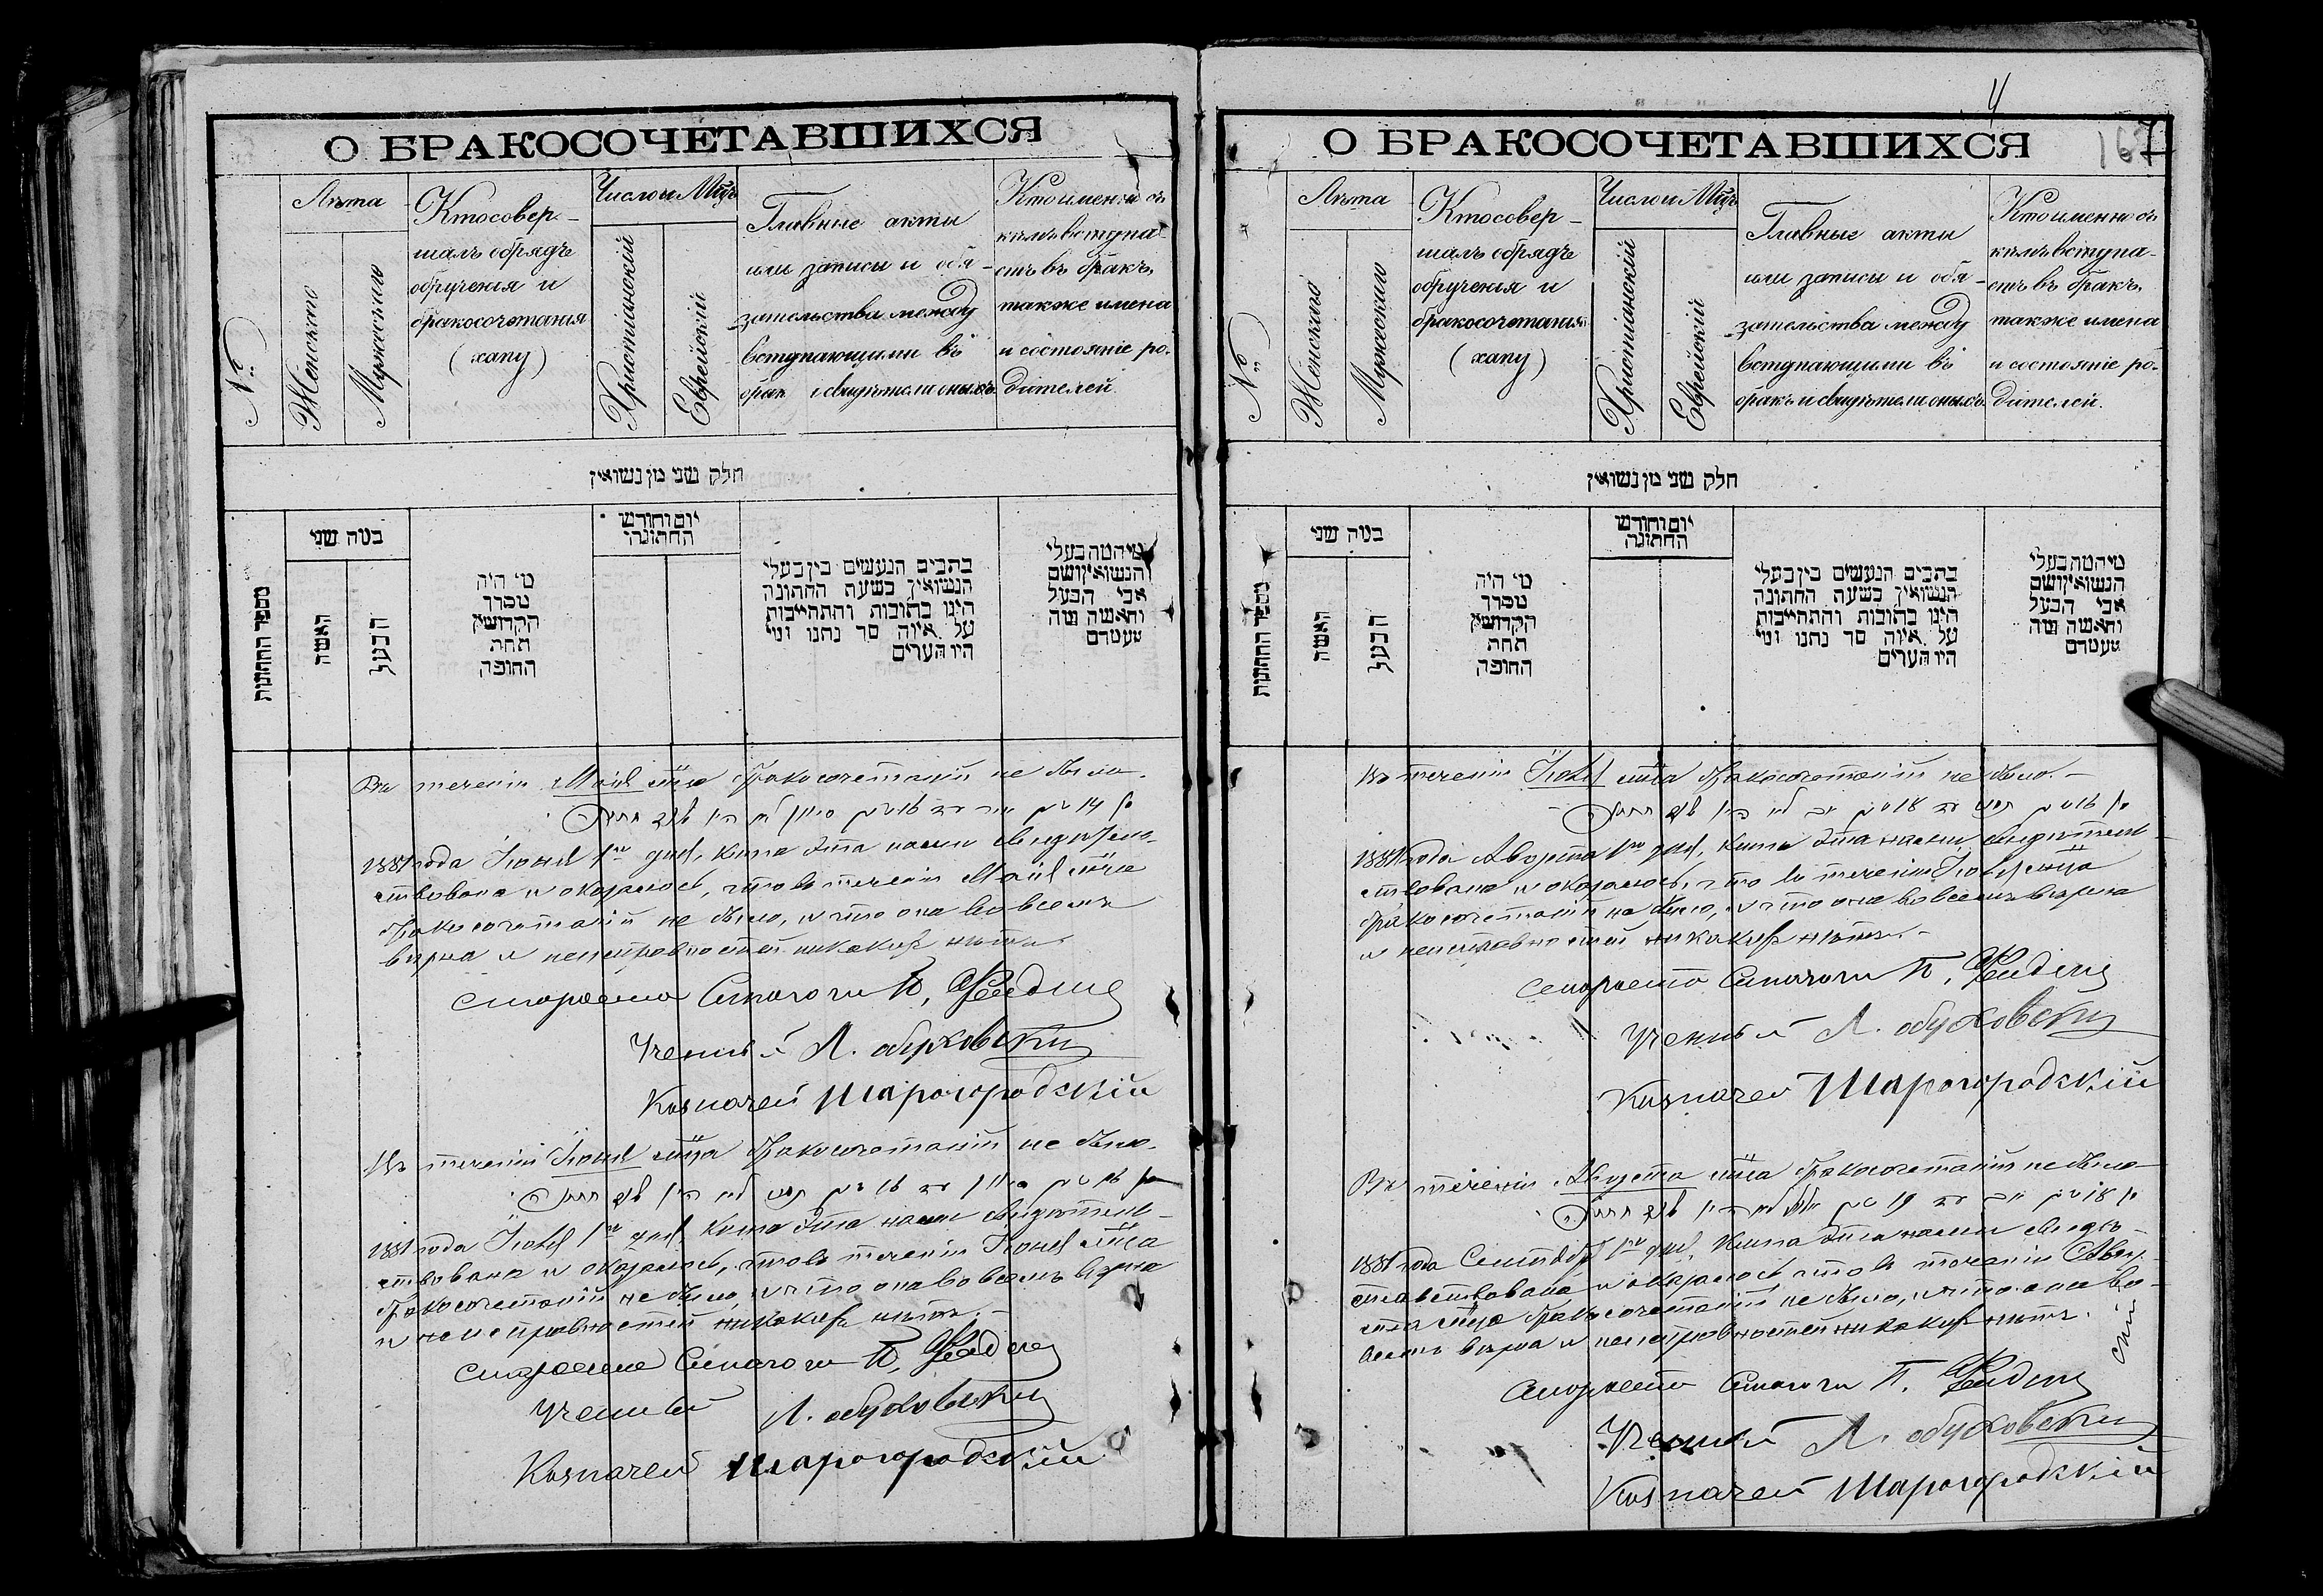 О БРАКОСОЧЕТАВШИХСЯ
№
Лѣта
Женскаго
Мужескаго
Кто совер-
шалъ обрядъ
обрученія и
бракосочетания
(хапу)
Число и Мѣцъ
Христіанскій
Еврейскій
Главные акты
или записи и обя-
зательства между
вступающими въ
бракъ и свидѣтели оныхъ
Кто именно съ
кѣмъ вступа-
етъ въ бракъ,
также имена
и состояніе ро-
дителей.
חלק שני מן נשואין
מספר החתונות
כמה שני
האשה
הבעל
מי היה
מסדר
הקדושין
תחת
החופה
יום וחודש
החתונה
כתבים הנעשים בין בעלי
הנשואין בשעה החתונה
היינו כתובות והתחייבות
על איזה סך נתנו ומי
היו הערים
מי המה בעלי
הנשואין ושם
אבי הבעל
והאשה ומה
מעמדם
Въ теченіи Маія мѣца бракосочетаній не было.
1881 года Іюня 1го дня, книга эта нами свидѣтель-
ствована и оказалось, что въ теченіи Маія мѣца
бракосочетаній не было, и что она во всемъ
вѣрна и неисправностей никакихъ нѣтъ.
Староста Синагоги П.
Ученый Л. Обуховскій
Казначей Шарогородскій
Въ теченіи Іюня мѣца бракосочетаній не было.
1881 года Іюля 1го дня, книга эта нами свидѣтель-
ствована и оказалось, что въ теченіи Іюня мѣца
бракосочетаній не было, и что она во всемъ вѣрна
и неисправностей никакихъ нѣтъ.
Староста Синагоги П.
Ученый Л. Обуховскій
Казначей Шарогородскій
4
167
О БРАКОСОЧЕТАВШИХСЯ
№
Лѣта
Женскаго
Мужескаго
Кто совер-
шалъ обрядъ
обрученія и
бракосочетания
(хапу)
Число и Мѣцъ
Христіанскій
Еврейскій
Главные акты
или записи и обя-
зательства между
вступающими въ
бракъ и свидѣтели оныхъ
Кто именно съ
кѣмъ вступа-
етъ въ бракъ,
также имена
и состояніе ро-
дителей.
חלק שני מן נשואין
מספר החתונות
כמה שני
האשה
הבעל
מי היה
מסדר
הקדושין
תחת
החופה
יום וחודש
החתונה
כתבים הנעשים בין בעלי
הנשואין בשעה החתונה
היינו כתובות והתחייבות
על איזה סך נתנו ומי
היו הערים
מי המה בעלי
הנשואין ושם
אבי הבעל
והאשה ומה
מעמדם
Въ теченіи Іюля мѣца бракосочетаній не было.
1881 года Августа 1го дня, книга эта нами свидѣтель-
ствована и оказалось, что въ теченіи Іюля мѣца
бракосочетаній не было, и что она во всемъ вѣрна
и неисправностей никакихъ нѣтъ.
Староста Синагоги П.
Ученый Л. Обуховскій
Казначей Шарогородскій
Въ теченіи Августа мѣца бракосочетаній не было
1881 года Сентября 1го дня, книга эта нами свидѣ-
тельствована и оказалось, что въ теченіи Авгу-
ста мѣца бракосочетаній не было, и что она во-
всемъ вѣрна и неисправностей никакихъ нѣтъ.
Староста Синагоги П.
Ученый Л. Обуховскій
Казначей Шарогородскій